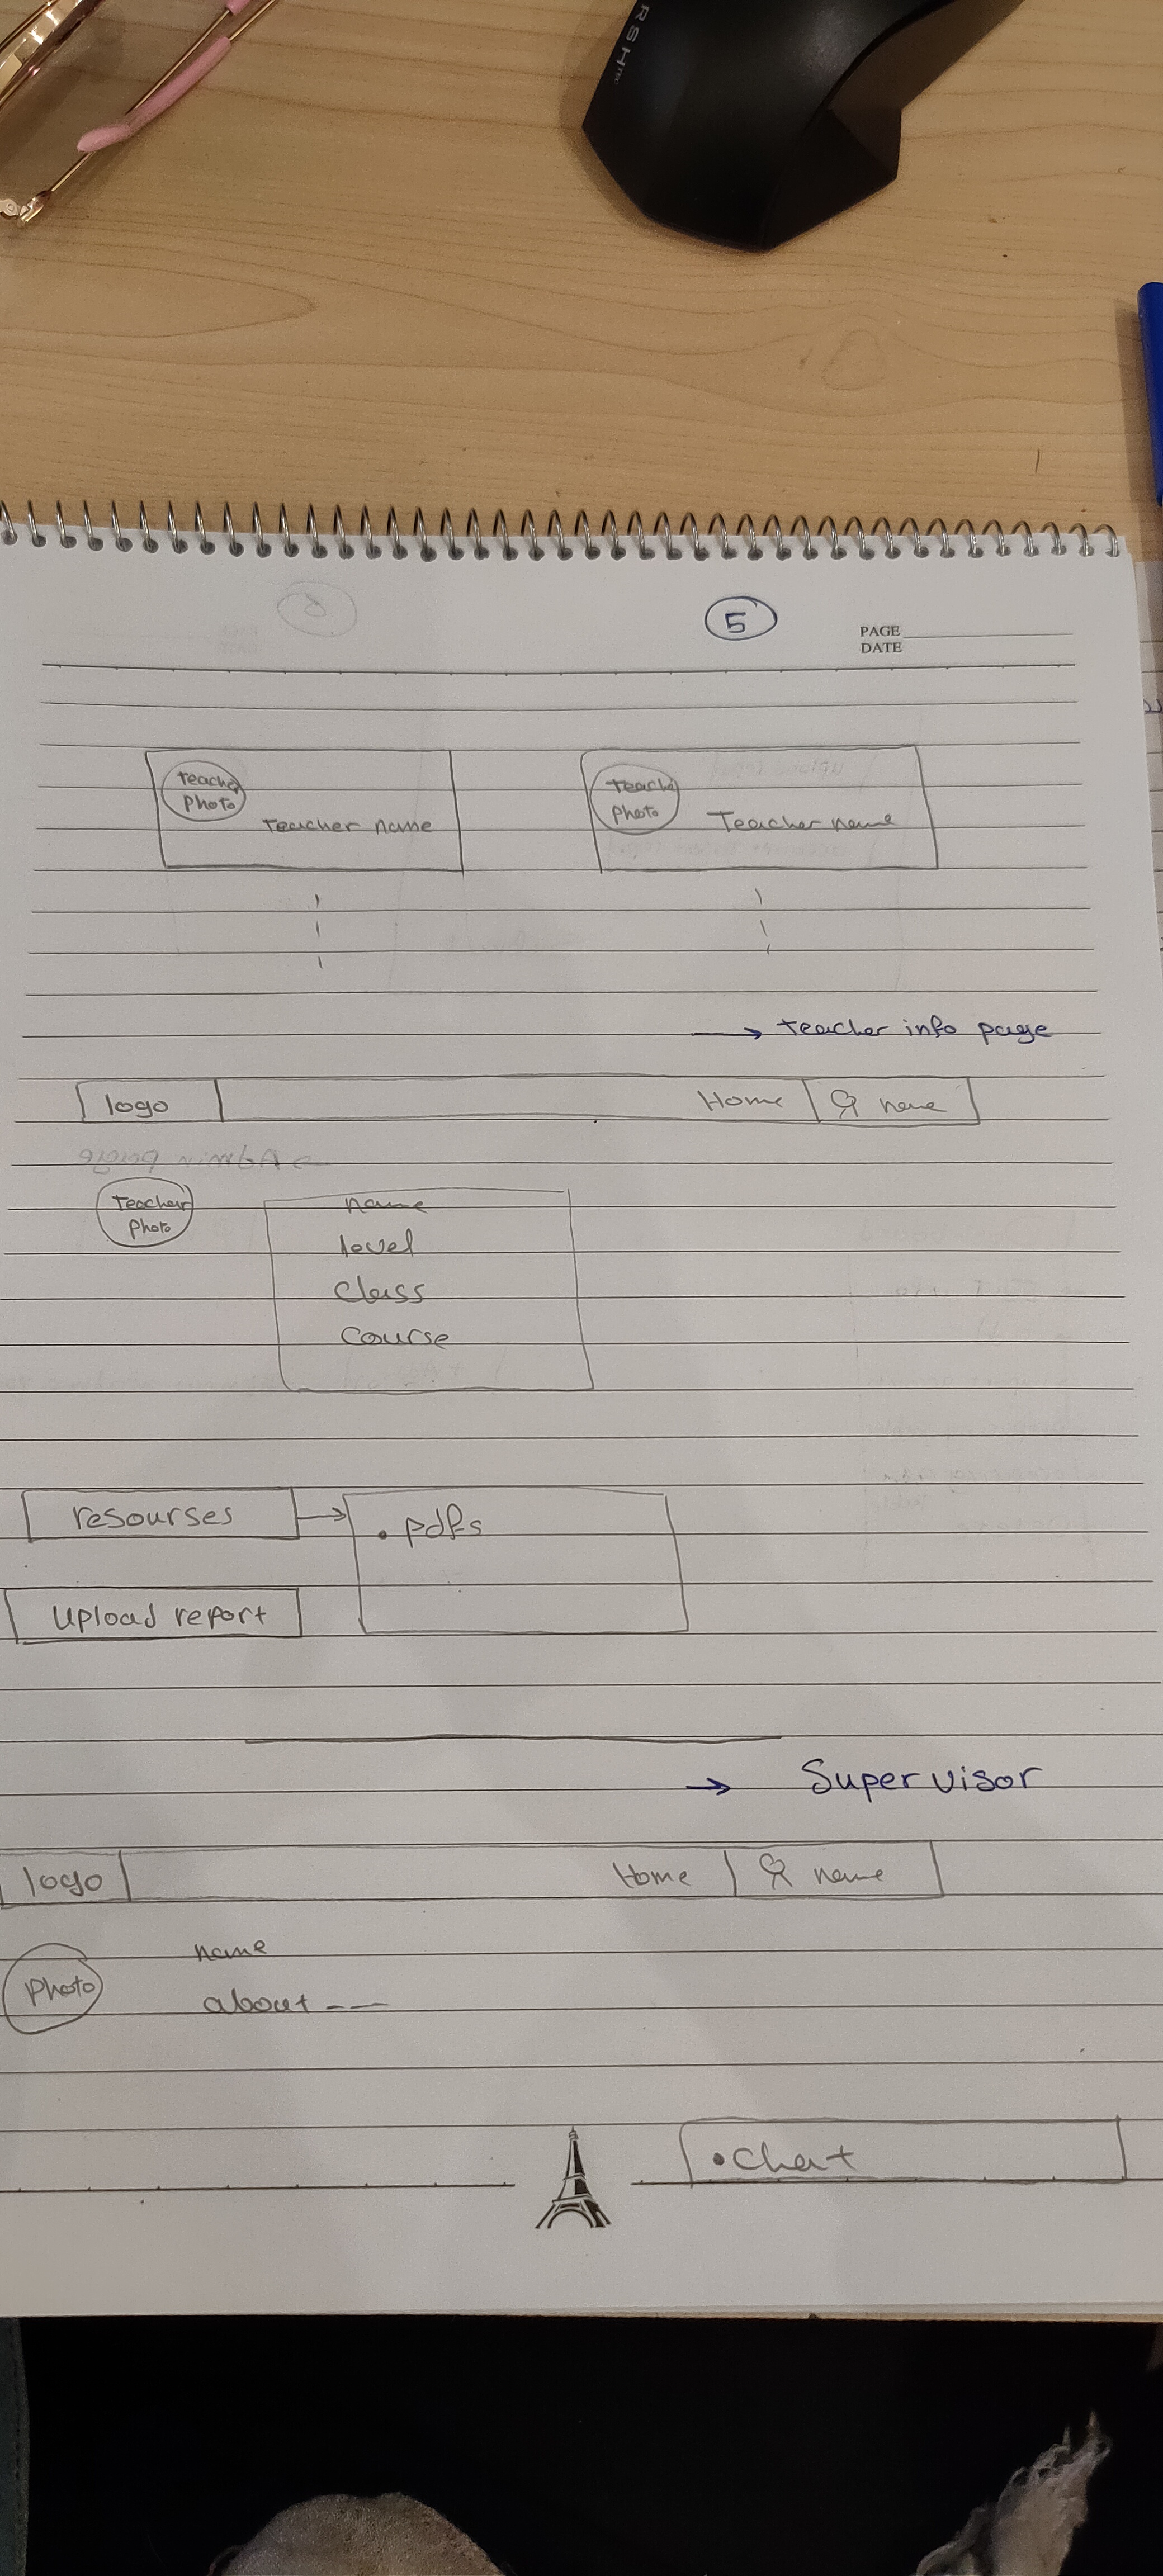 RSH
5
PAGE
DATE
Teacher Photo
Teacher name
Teacher Photo
Teacher name
→ teacher info page
logo
Home
name
Teacher Photo
name
level
Class
Course
resourses → . pdfs
Upload report
→ Supervisor
logo
Home
name
Photo
name
about ---
• Chat